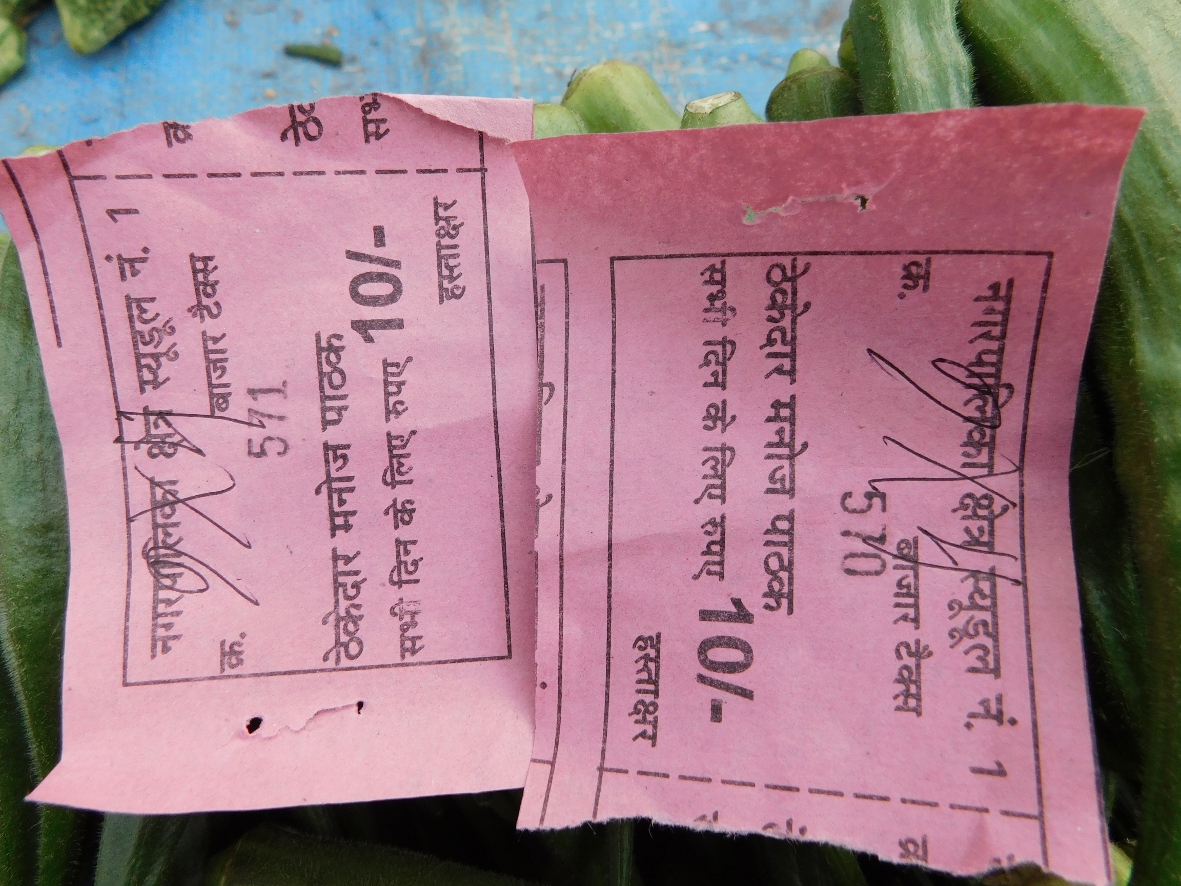 नगरपालिका क्षेत्र स्यूडूल नं. 1
क्र. बाजार टैक्स
571
ठेकेदार मनोज पाठक
सभी दिन के लिए रुपए 10/-
हस्ताक्षर
नगरपालिका क्षेत्र स्यूडूल नं. 1
क्र. बाजार टैक्स
570
ठेकेदार मनोज पाठक
सभी दिन के लिए रुपए 10/-
हस्ताक्षर